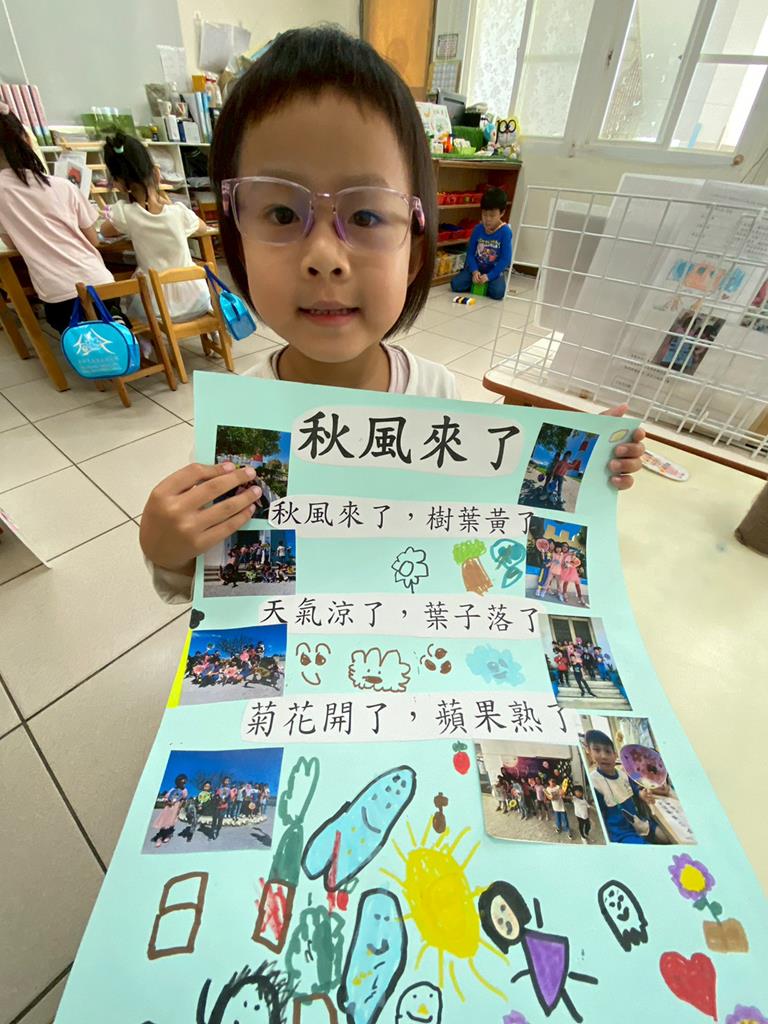 秋風來了
秋風來了，樹葉黃了
天氣涼了，葉子落了
菊花開了，蘋果熟了